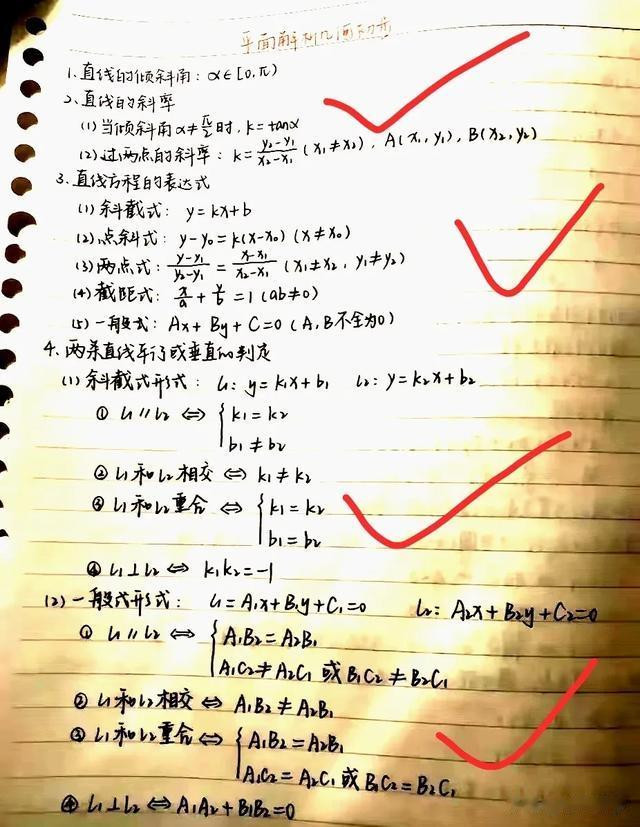 平面解析几何初步
1、直线的倾斜角：α∈[0,π)
2、直线的斜率
(1) 当倾斜角α≠π/2时，k=tanα
(2) 过两点的斜率：k=(y₂-y₁)/(x₂-x₁) (x₁≠x₂)，A(x₁,y₁)，B(x₂,y₂)
3、直线方程的表达式
(1) 斜截式：y=kx+b
(2) 点斜式：y-y₀=k(x-x₀) (x≠x₀)
(3) 两点式：(y-y₁)/(y₂-y₁)=(x-x₁)/(x₂-x₁) (x₁≠x₂，y₁≠y₂)
(4) 截距式：x/a+y/b=1 (ab≠0)
(5) 一般式：Ax+By+C=0 (A,B不全为0)
4、两条直线平行或垂直的判定
(1) 斜截式形式：l₁：y=k₁x+b₁ l₂：y=k₂x+b₂
① l₁∥l₂ ⇔ { k₁=k₂
b₁≠b₂
② l₁和l₂相交 ⇔ k₁≠k₂
③ l₁和l₂重合 ⇔ { k₁=k₂
b₁=b₂
④ l₁⊥l₂ ⇔ k₁k₂=-1
(2) 一般式形式：l₁=A₁x+B₁y+C₁=0 l₂：A₂x+B₂y+C₂=0
① l₁∥l₂ ⇔ { A₁B₂=A₂B₁
A₁C₂≠A₂C₁ 或 B₁C₂≠B₂C₁
② l₁和l₂相交 ⇔ A₁B₂≠A₂B₁
③ l₁和l₂重合 ⇔ { A₁B₂=A₂B₁
A₁C₂=A₂C₁ 或 B₁C₂=B₂C₁
④ l₁⊥l₂ ⇔ A₁A₂+B₁B₂=0